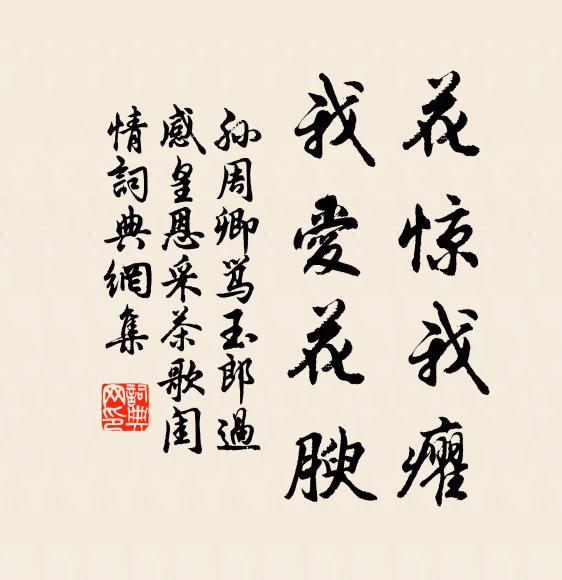 花惊我癯
我愛花腴
孙周卿骂玉郎過
感皇恩采茶歌闺
情詞典網集
詞典
网印